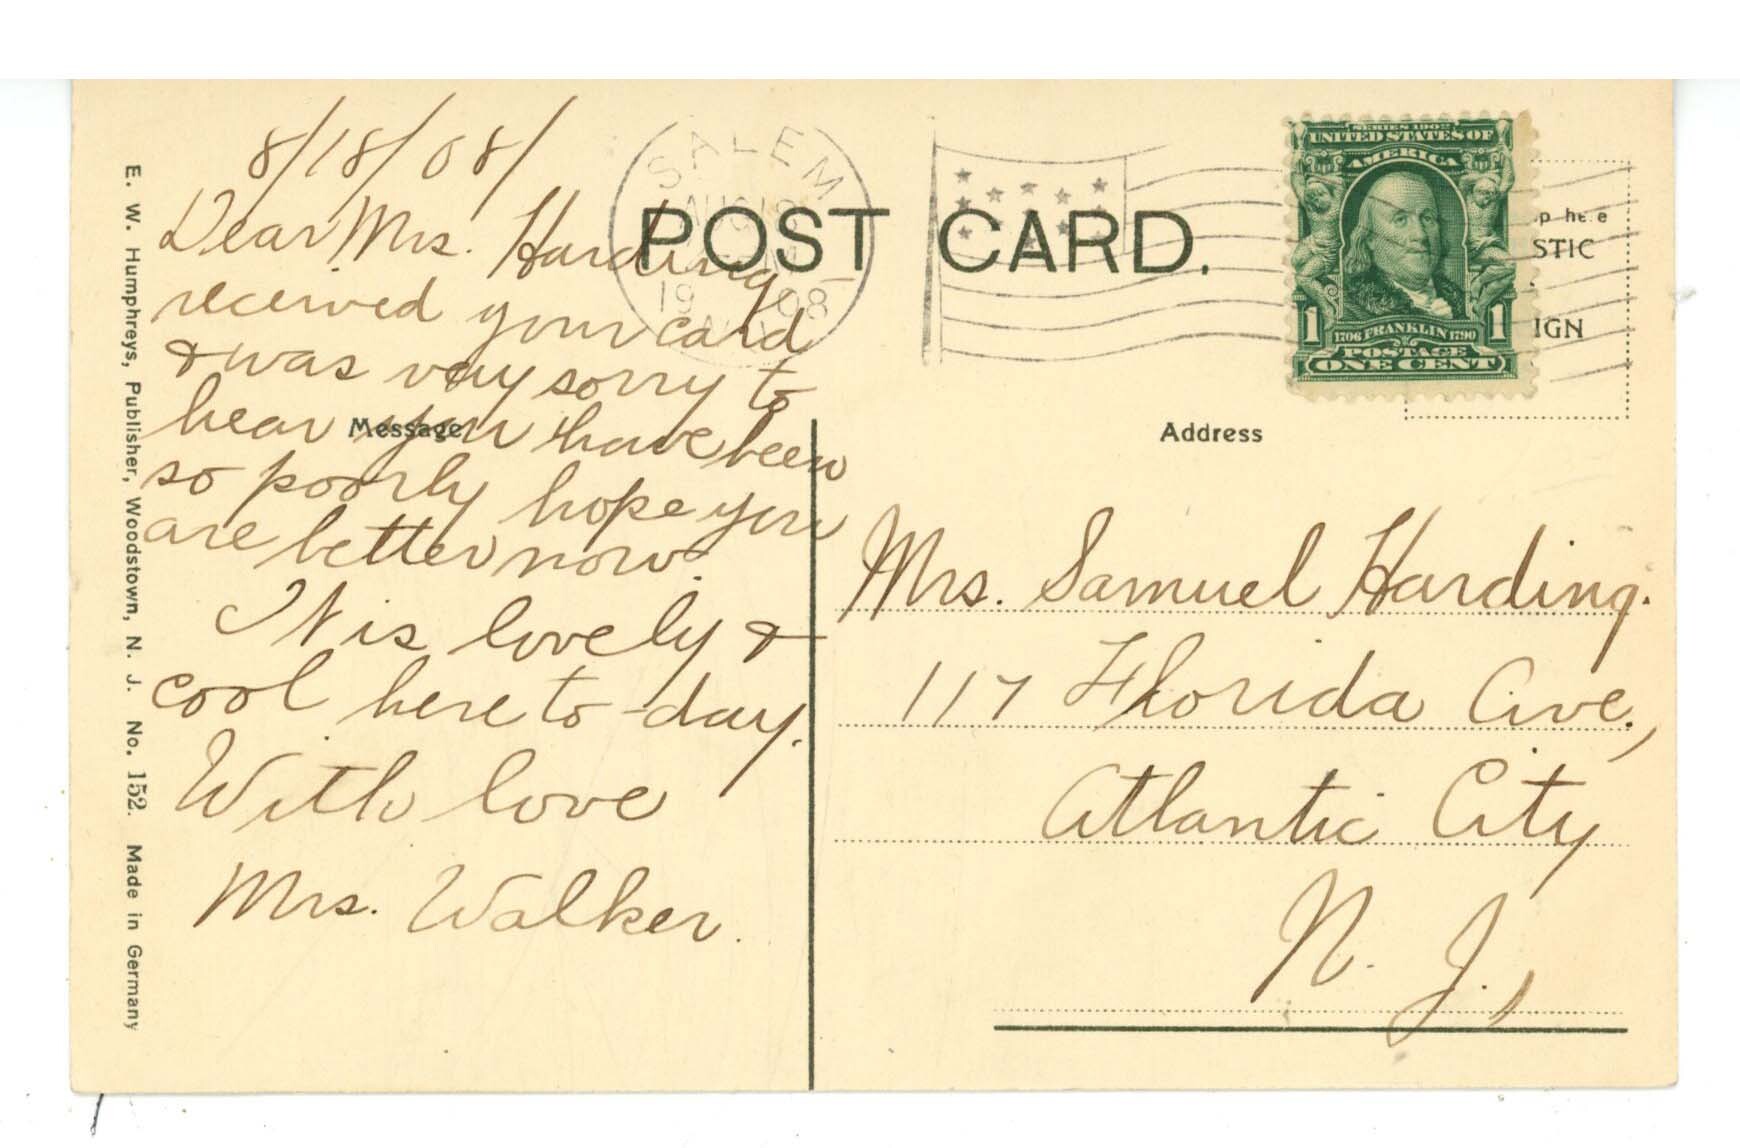 8/18/08/
Dear Mrs. Harding
received your card
& was very sorry to
hear you have been
so poorly hope you
are better now.
It is lovely &
cool here to-day.
With love
Mrs. Walker.
POST CARD.
Message
Address
SALEM
AUG
19 08
SERIES 1902
UNITED STATES OF
AMERICA
1 1706 FRANKLIN 1790 1
POSTAGE
ONE CENT
p here
STIC
IGN
Mrs. Samuel Harding.
117 Florida Ave,
Atlantic City
N. J.,
E. W. Humphreys, Publisher, Woodstown, N. J. No. 152. Made in Germany